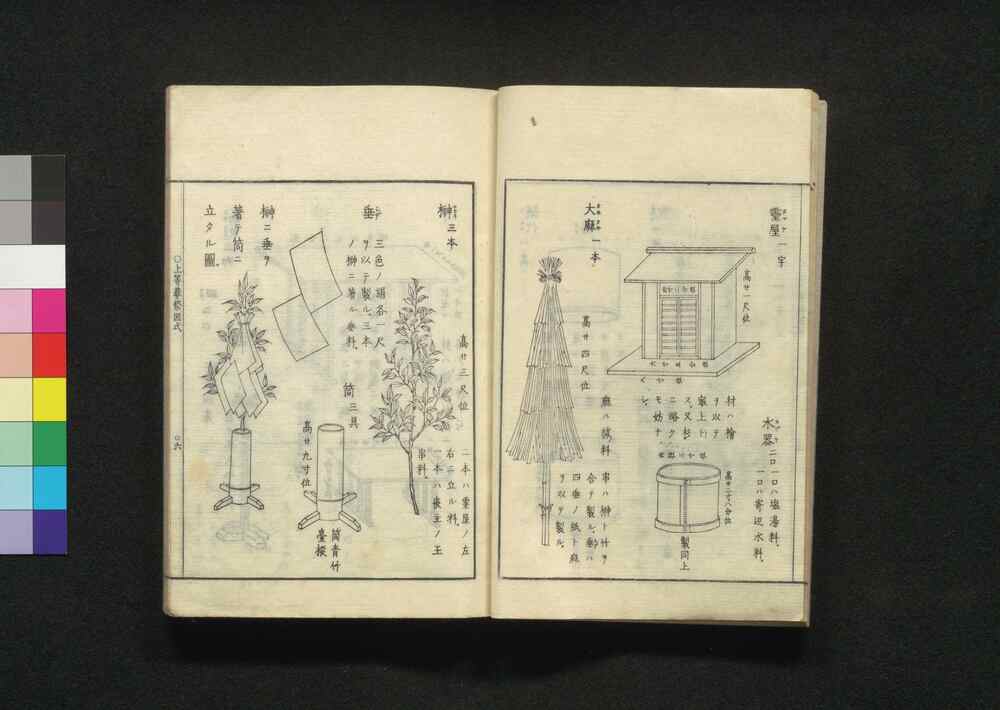 靈屋一宇
高サ一尺位
材ハ檜
ヲ以テ
ス又杉
ニ略ク
モ妨ナ
シ
水器
二口一口ハ塩湯料、
一口ハ寄辺水料、
高サ二寸八分位
製同上
大麻一本
高サ四尺位
麻ハ祓料
串ハ榊ト竹ヲ
合テ製ル、垂ハ
四垂ノ紙ト麻
ヲ以テ製ル、
榊三本
高サ三尺位
二本ハ霊屋ノ左
右ニ立ル料、
一本ハ喪主ノ玉
串料、
垂
三色ノ絹各一尺
ヲ以テ製ル、三本
ノ榊ニ著ル垂料、
筒三具
高サ九寸位
筒青竹
臺椴
榊ニ垂ヲ
著テ筒ニ
立タル圖、
○上等葬祭図式
○六